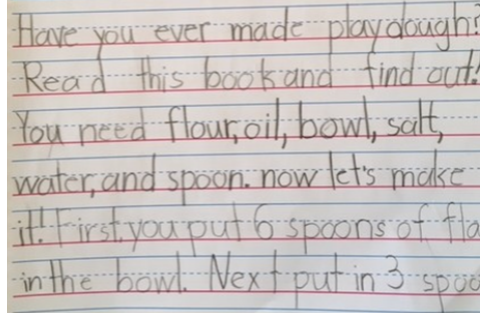 Have you ever made playdough?
Read this book and find out!
You need flour, oil, bowl, salt,
water, and spoon. now let's make
it! First, you put 6 spoons of
in the bowl. Next put in 3